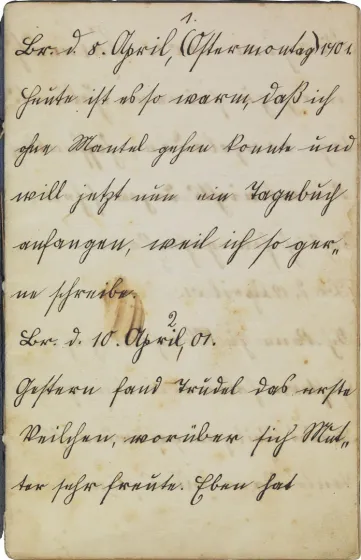 1.
Br. d. 8. April, (Ostermontag) 1901.
Heute ist es so warm, daß ich
ohne Mantel gehen konnte und
will jetzt nun ein Tagebuch
anfangen, weil ich so ger-
ne schreibe.
2
Br. d. 10. April, 01.
Gestern fand Trudel das erste
Veilchen, worüber sich Mut-
ter sehr freute. Eben hat